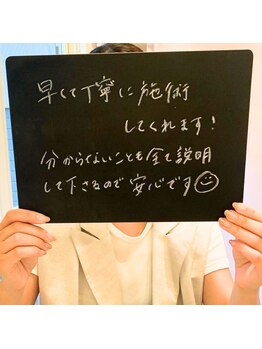 早くて丁寧に施術
してくれます！
分からないことも全て説明
して下さるので安心です☺